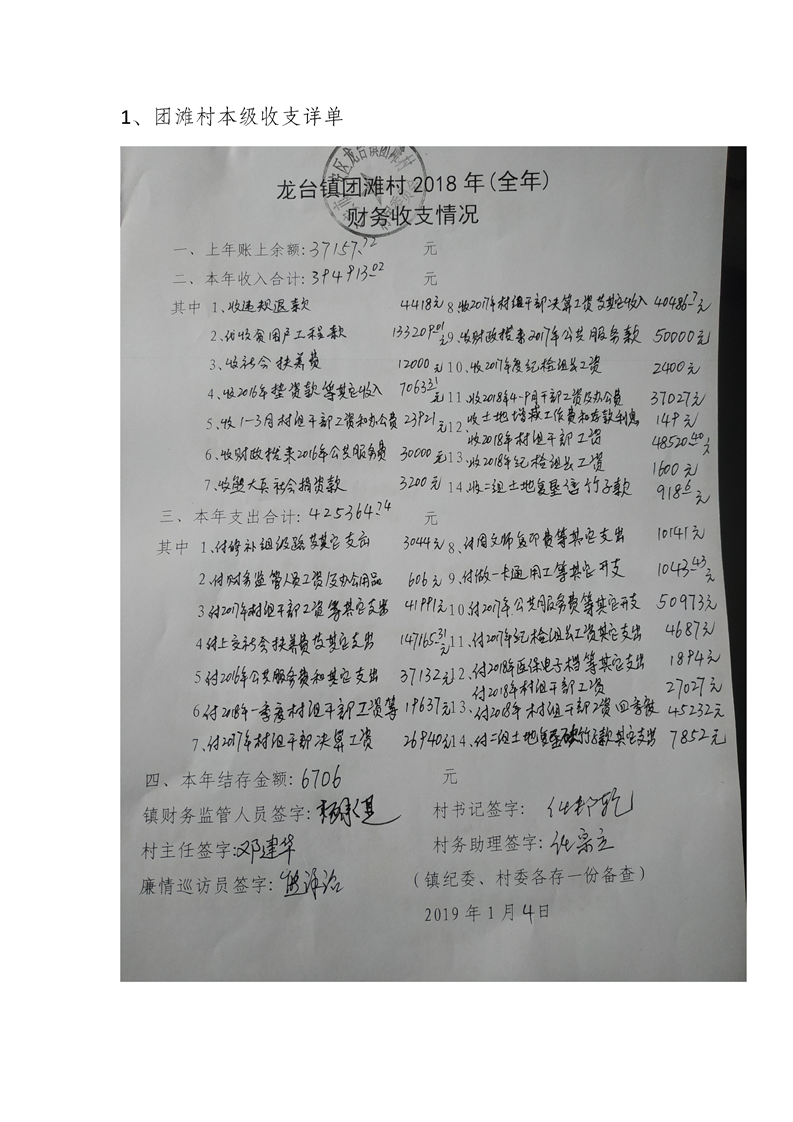 1、团滩村本级收支详单
龙台镇团滩村 2018 年(全年)
财务收支情况
一、上年账上余额:37157.72 元
二、本年收入合计:394913.02 元
其中 1、收违规退款 4418元 8.收2017年村组干部决算工资及其它收入 40486.7元
2、收贫困户工程款 133209.01元 9、收财政拨来2017年公共服务款 50000元
3、收社会扶养费 12000元 10、收2017年度纪检组长工资 2400元
4、收2016年垫资款等其它收入 7063.31元 11、收2018年4-9月干部工资及办公费 37027元
5、收1-3月村组干部工资和办公费 23921元 12、收土地增减工作费和存款利息 149元
收2018年村组干部工资 48520.40元
6、收财政拨来2016年公共服务费 30000元 13、收2018年纪检组长工资 1600元
7、收熊大兵社会捐资款 3200元 14、收二组土地复垦 竹子款 918.6元
三、本年支出合计:425364.74 元
其中 1、付修补组级路及其它支出 3044元 8、付图文师复印费等其它支出 10141元
2、付财务监管人员工资及办公用品 606元 9、付做一卡通用工等其它开支 1043.43元
3付2017年村组干部工资等其它支出 41991元 10付2017年公共服务费等其它开支 50973元
4付上交社会扶养费及其它支出 147165.31元 11、付2017年纪检组长工资其它支出 4687元
5付2016年公共服务费和其它支出 37132元 12、付2018年医保电子档等其它支出 1894元
付2018年村组干部工资 27027元
6付2018年一季度村组干部工资等 19637元 13、付2018年村组干部工资四季度 45232元
7、付2017年村组干部决算工资 26940元 14、付二组土地复垦 竹子款其它支出 7852元
四、本年结存金额:6706 元
镇财务监管人员签字: 村书记签字:
村主任签字:邓建华 村务助理签字:任宗立
廉情巡访员签字:
(镇纪委、村委各存一份备查)
2019 年 1 月 4 日